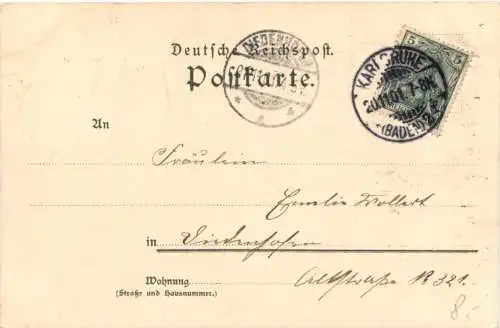 Deutsche Reichspost.
Postkarte.
5
5
KARLSRUHE
20.11.01. 7-8N.
(BADEN) 2
An
Fräulein
Emilie Wollert
in Diedenhofen
Wohnung
(Straße und Hausnummer.)
Altstraße № 321.
8.-